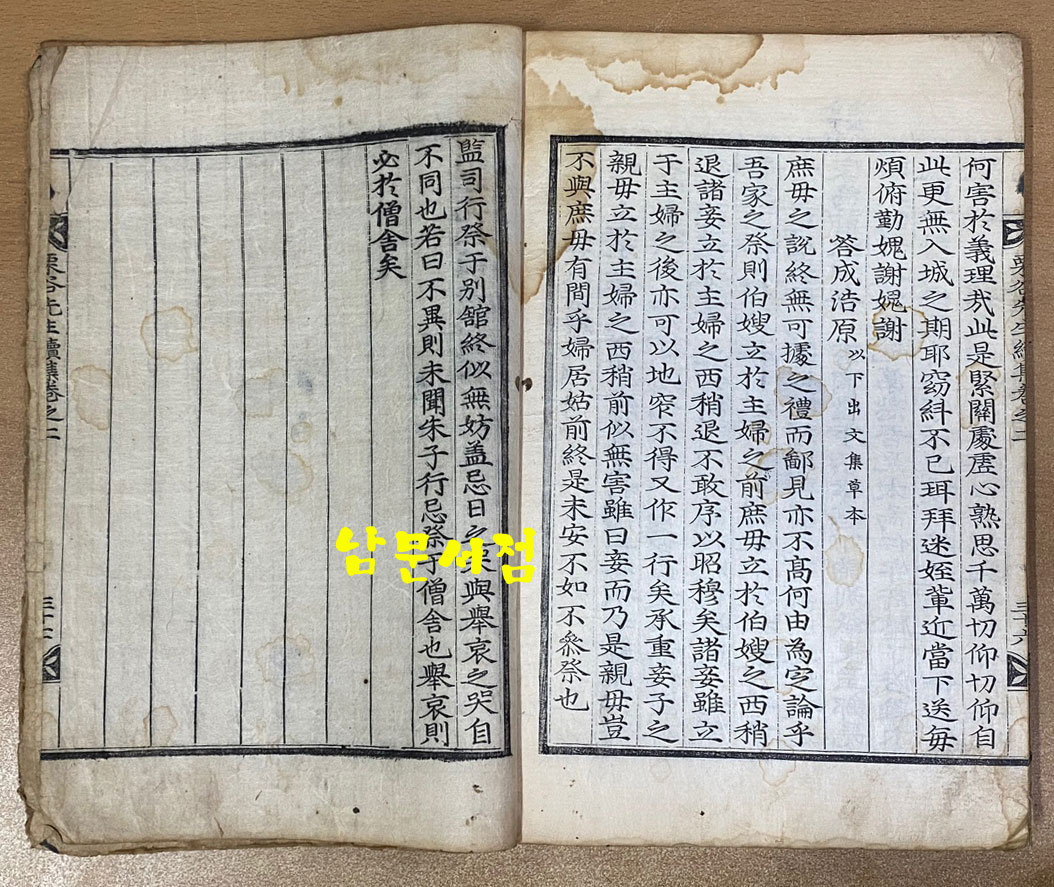 何害於義理哉此是緊關處虛心熟思千萬切仰切仰自
此更無入城之期耶窈糾不已珥拜迷姪輩近當下送每
煩俯勤媿謝媿謝
答成浩原 以下出文集草本
庶母之說終無可據之禮而鄙見亦不高何由為定論乎
吾家之祭則伯嫂立於主婦之前庶母立於伯嫂之西稍
退諸妾立於主婦之西稍退不敢序以昭穆矣諸妾雖立
于主婦之後亦可以地窄不得又作一行矣承重妾子之
親母立於主婦之西稍前似無害雖曰妾而乃是親母豈
不與庶母有間乎婦居姑前終是未安不如不參祭也
栗谷先生續集卷之二
三十六
監司行祭于別舘終似無妨盖忌日之哭與舉哀之哭自
不同也若曰不異則未聞朱子行忌祭于僧舍也舉哀則
必於僧舍矣
栗谷先生續集卷之二
남문서점